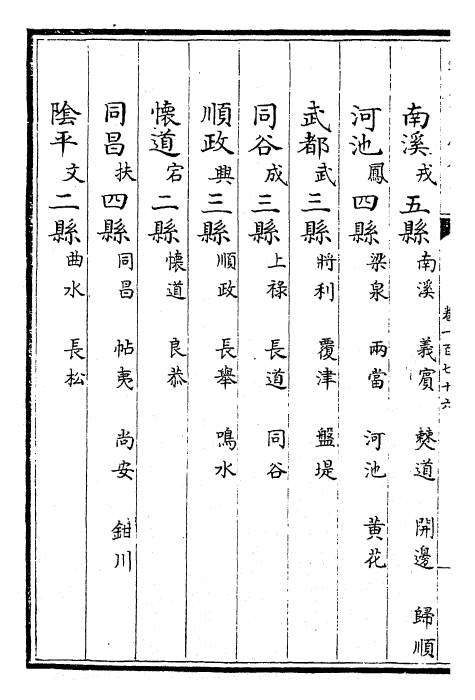 卷一百七十六
南溪戎五縣 南溪 義賓 僰道 開邊 歸順
河池鳳四縣 梁泉 兩當 河池 黃花
武都武三縣 將利 覆津 盤堤
同谷成三縣 上祿 長道 同谷
順政興三縣 順政 長舉 鳴水
懷道宕二縣 懷道 良恭
同昌扶四縣 同昌 帖夷 尚安 鉗川
陰平文二縣 曲水 長松